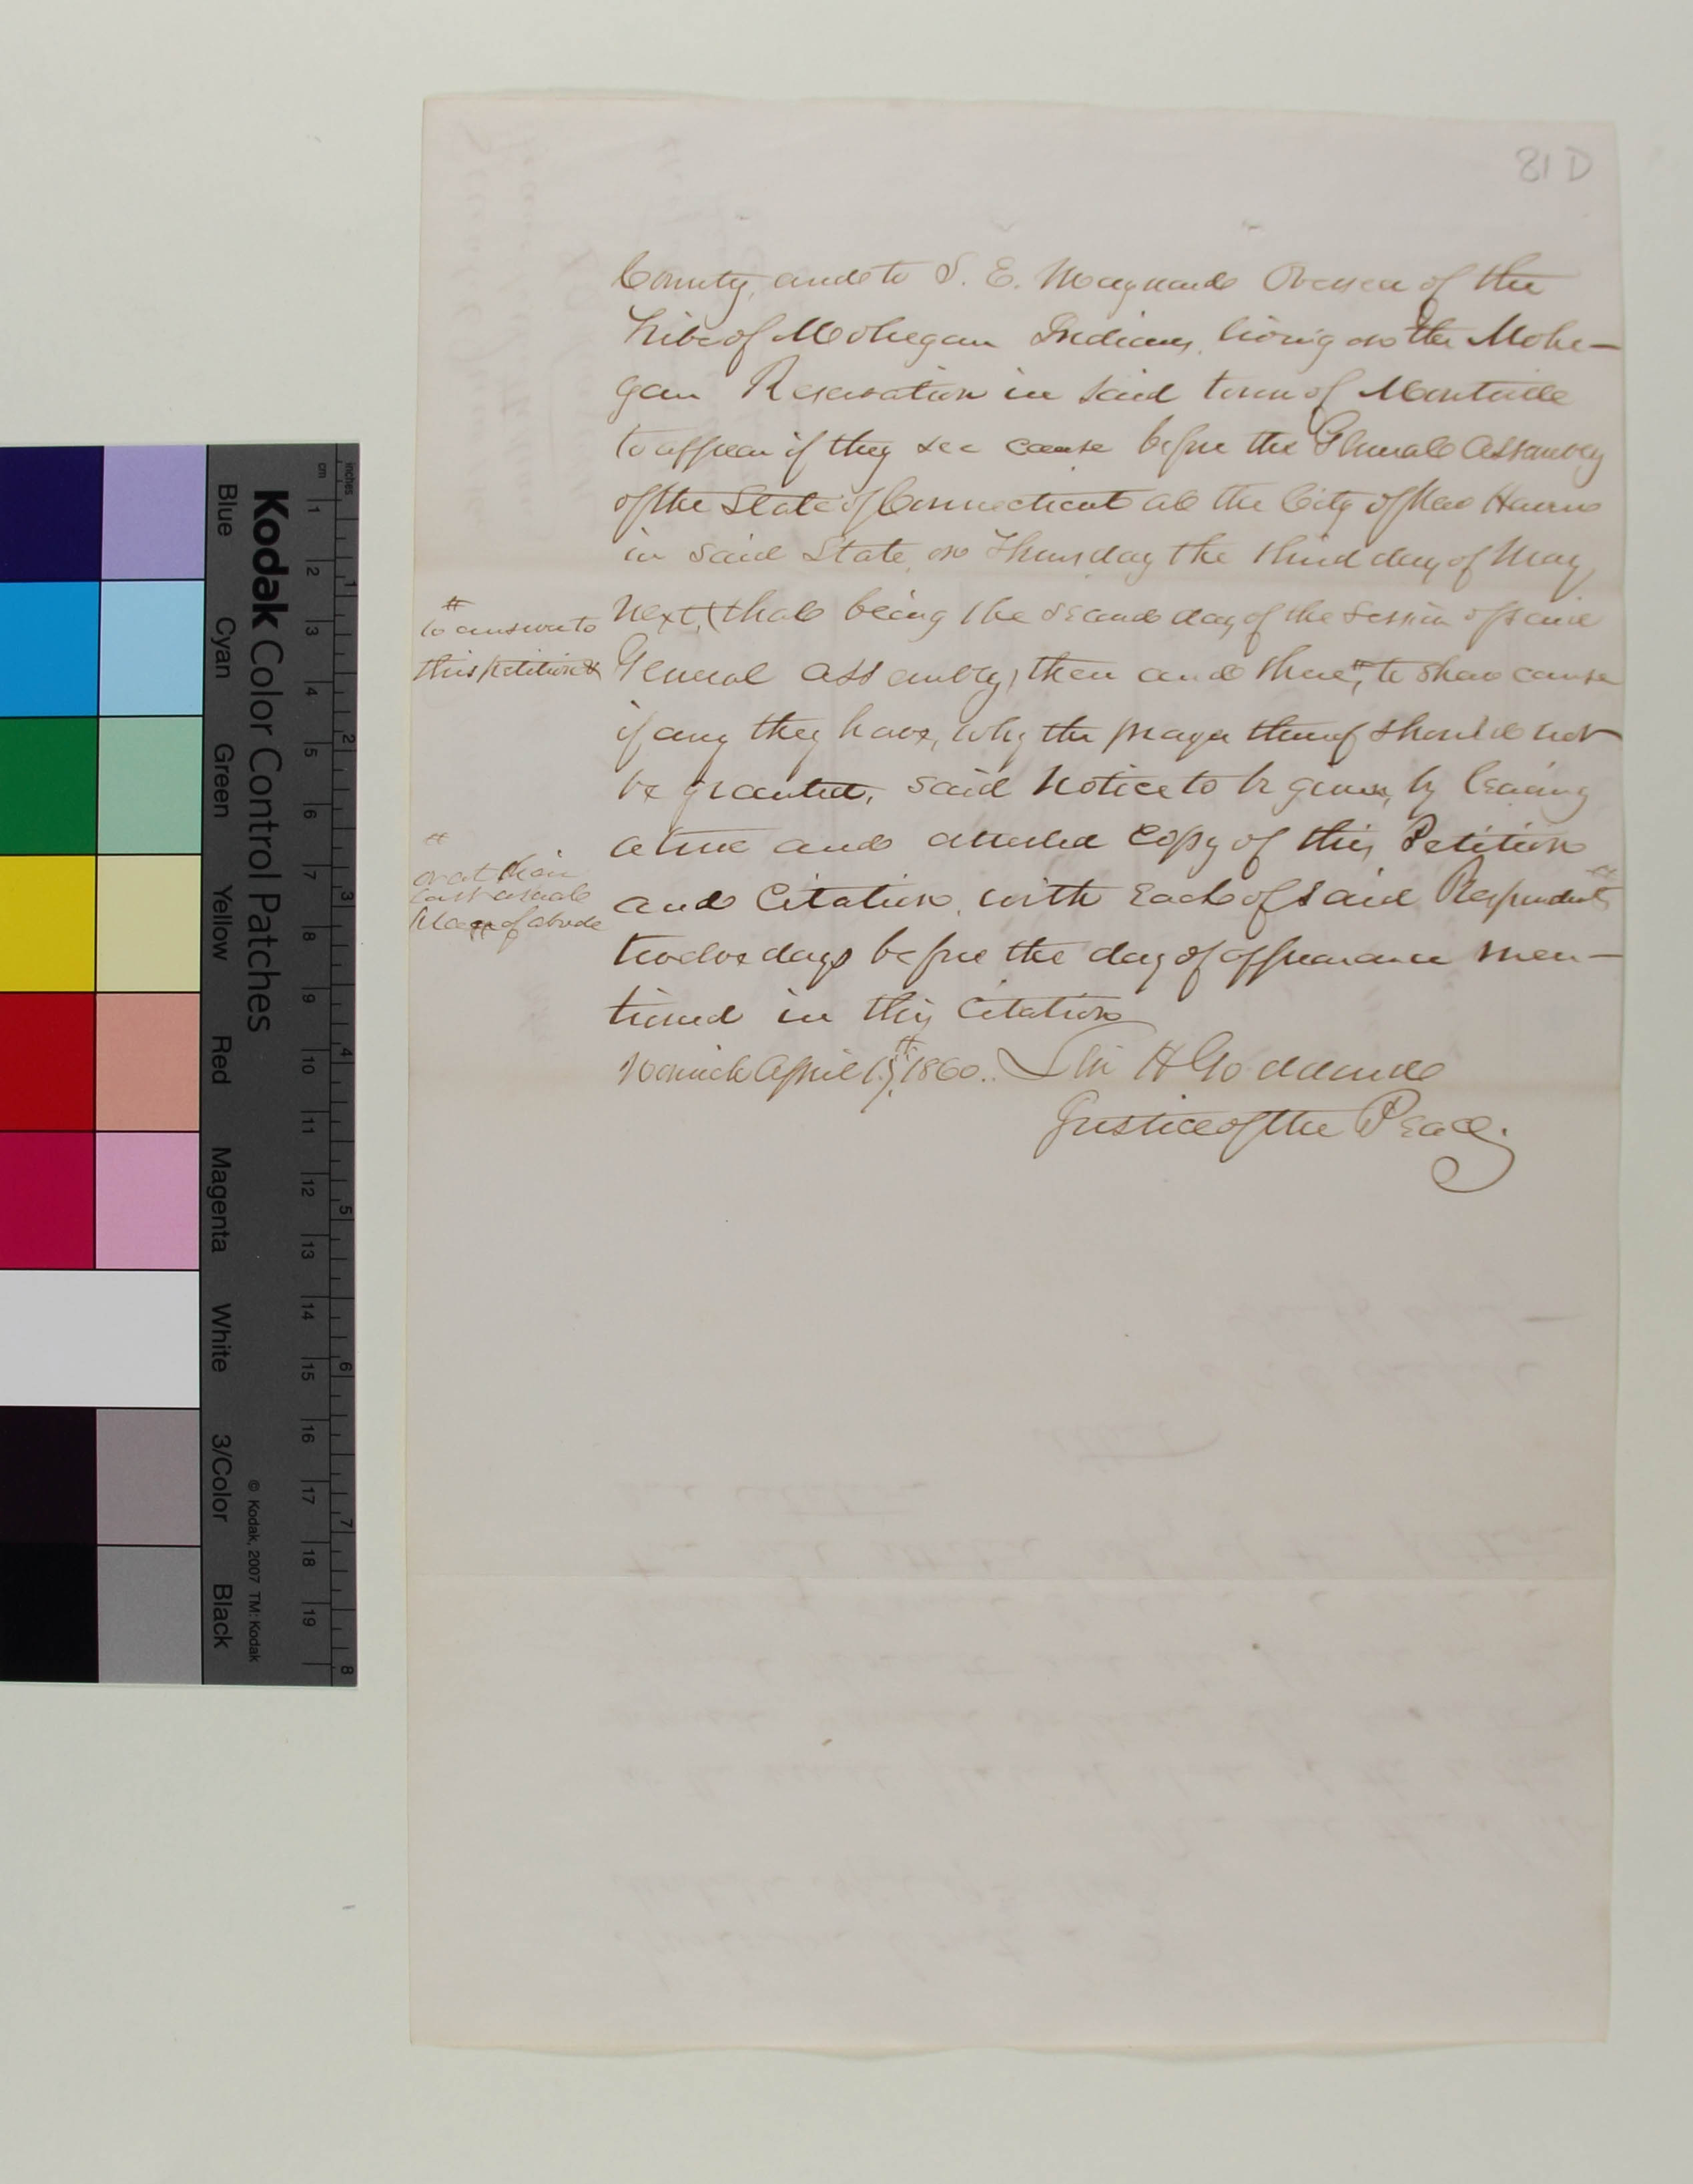 81 D
County, and to S. E. Maynard Overseer of the
Tribe of Mohegan Indians, living on the Mohe-
gan Reservation in said town of Montville
to appear if they see cause before the General Assembly
of the State of Connecticut at the City of New Haven
in said State, on Thursday the third day of May
#
to answer to
this petition &
next, (that being the second day of the session of said
General Assembly) then and there, # to shew cause
if any they have, why the prayer thereof should not
be granted, said notice to be given, by leaving
a true and attested copy of this Petition
#
or at their
last usual
place of abode
and Citation, with each of said Respondents #
twelve days before the day of appearance men-
tioned in this Citation
Norwich April 1860. H Goddard
Justice of the Peace.
Kodak Color Control Patches
Blue Cyan Green Yellow Red Magenta White 3/Color Black
© Kodak, 2007 TM: Kodak
inches 1 2 3 4 5 6 7 8
cm 1 2 3 4 5 6 7 8 9 10 11 12 13 14 15 16 17 18 19